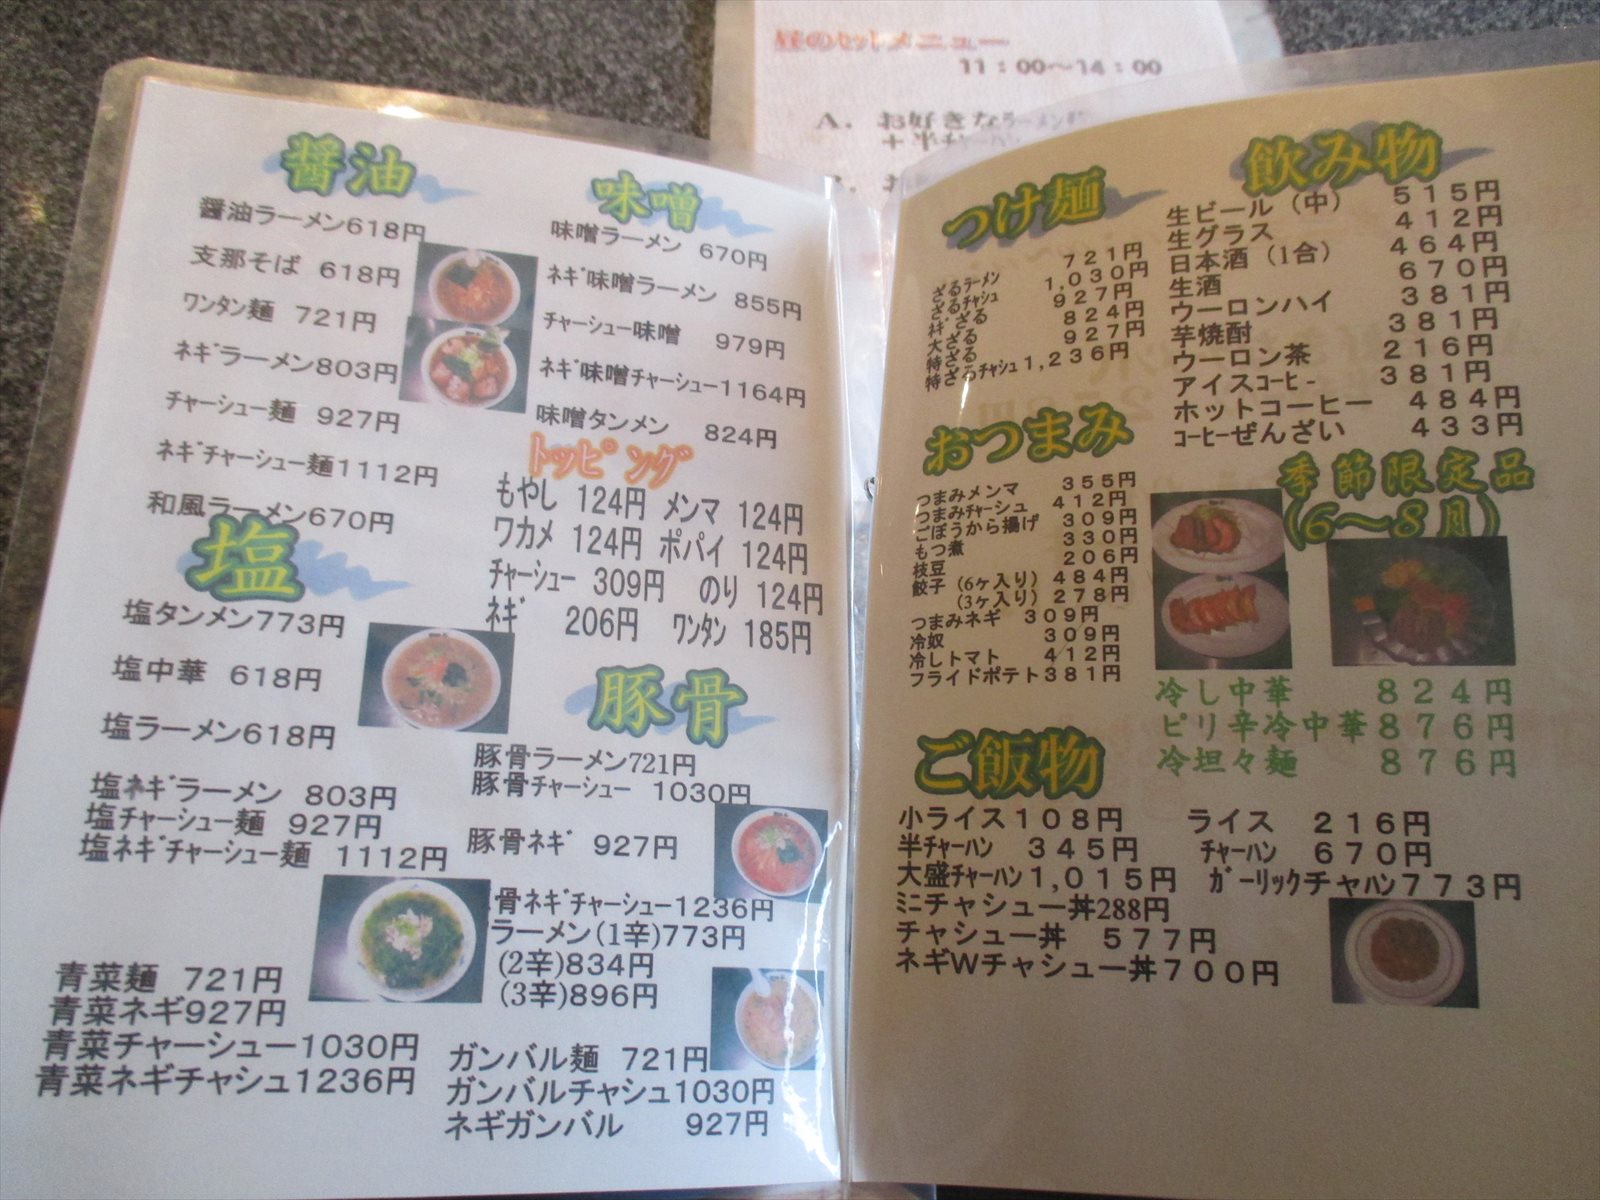 昼のセットメニュー
11：00～14：00
A. お好きなラーメン
＋半チャーハン
醤油
醤油ラーメン618円
支那そば 618円
ワンタン麺 721円
ネギラーメン803円
チャーシュー麺 927円
ネギチャーシュー麺1112円
和風ラーメン670円
塩
塩タンメン773円
塩中華 618円
塩ラーメン618円
塩ネギラーメン 803円
塩チャーシュー麺 927円
塩ネギチャーシュー麺 1112円
青菜麺 721円
青菜ネギ927円
青菜チャーシュー1030円
青菜ネギチャシュ1236円
味噌
味噌ラーメン 670円
ネギ味噌ラーメン 855円
チャーシュー味噌 979円
ネギ味噌チャーシュー1164円
味噌タンメン 824円
トッピング
もやし 124円 メンマ 124円
ワカメ 124円 ポパイ 124円
チャーシュー 309円 のり 124円
ネギ 206円 ワンタン 185円
豚骨
豚骨ラーメン721円
豚骨チャーシュー 1030円
豚骨ネギ 927円
骨ネギチャーシュー1236円
ラーメン(1辛)773円
(2辛)834円
(3辛)896円
ガンバル麺 721円
ガンバルチャシュ1030円
ネギガンバル 927円
つけ麺
ざるラーメン 721円
ざるチャシュ 1,030円
ネギざる 927円
大ざる 824円
特ざる 927円
特ざるチャシュ1,236円
おつまみ
つまみメンマ 355円
つまみチャーシュ 412円
ごぼうから揚げ 309円
もつ煮 330円
枝豆 206円
餃子（6ヶ入り）484円
（3ヶ入り）278円
つまみネギ 309円
冷奴 309円
冷しトマト 412円
フライドポテト381円
ご飯物
小ライス108円 ライス 216円
半チャーハン 345円 チャーハン 670円
大盛チャーハン1,015円 ガーリックチャハン773円
ミニチャシュー丼288円
チャシュー丼 577円
ネギWチャシュー丼700円
飲み物
生ビール（中） 515円
生グラス 412円
日本酒（1合） 464円
生酒 670円
ウーロンハイ 381円
芋焼酎 381円
ウーロン茶 216円
アイスコーヒー 381円
ホットコーヒー 484円
コーヒーぜんざい 433円
季節限定品
(6～8月)
冷し中華 824円
ピリ辛冷中華876円
冷坦々麺 876円